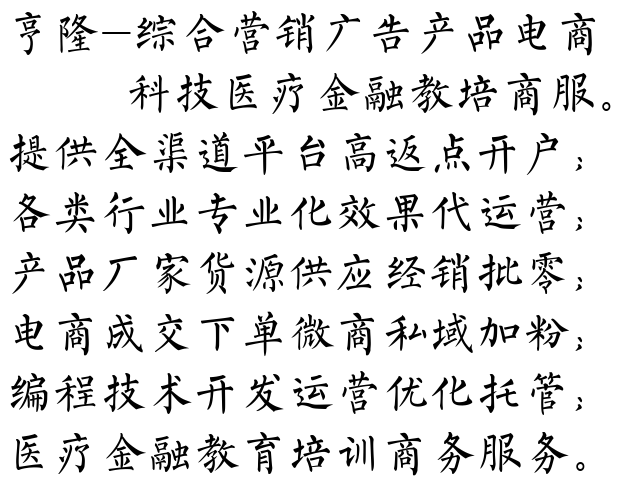 亨隆—综合营销广告产品电商
科技医疗金融教培商服。
提供全渠道平台高返点开户；
各类行业专业化效果代运营；
产品厂家货源供应经销批零；
电商成交下单微商私域加粉；
编程技术开发运营优化托管；
医疗金融教育培训商务服务。